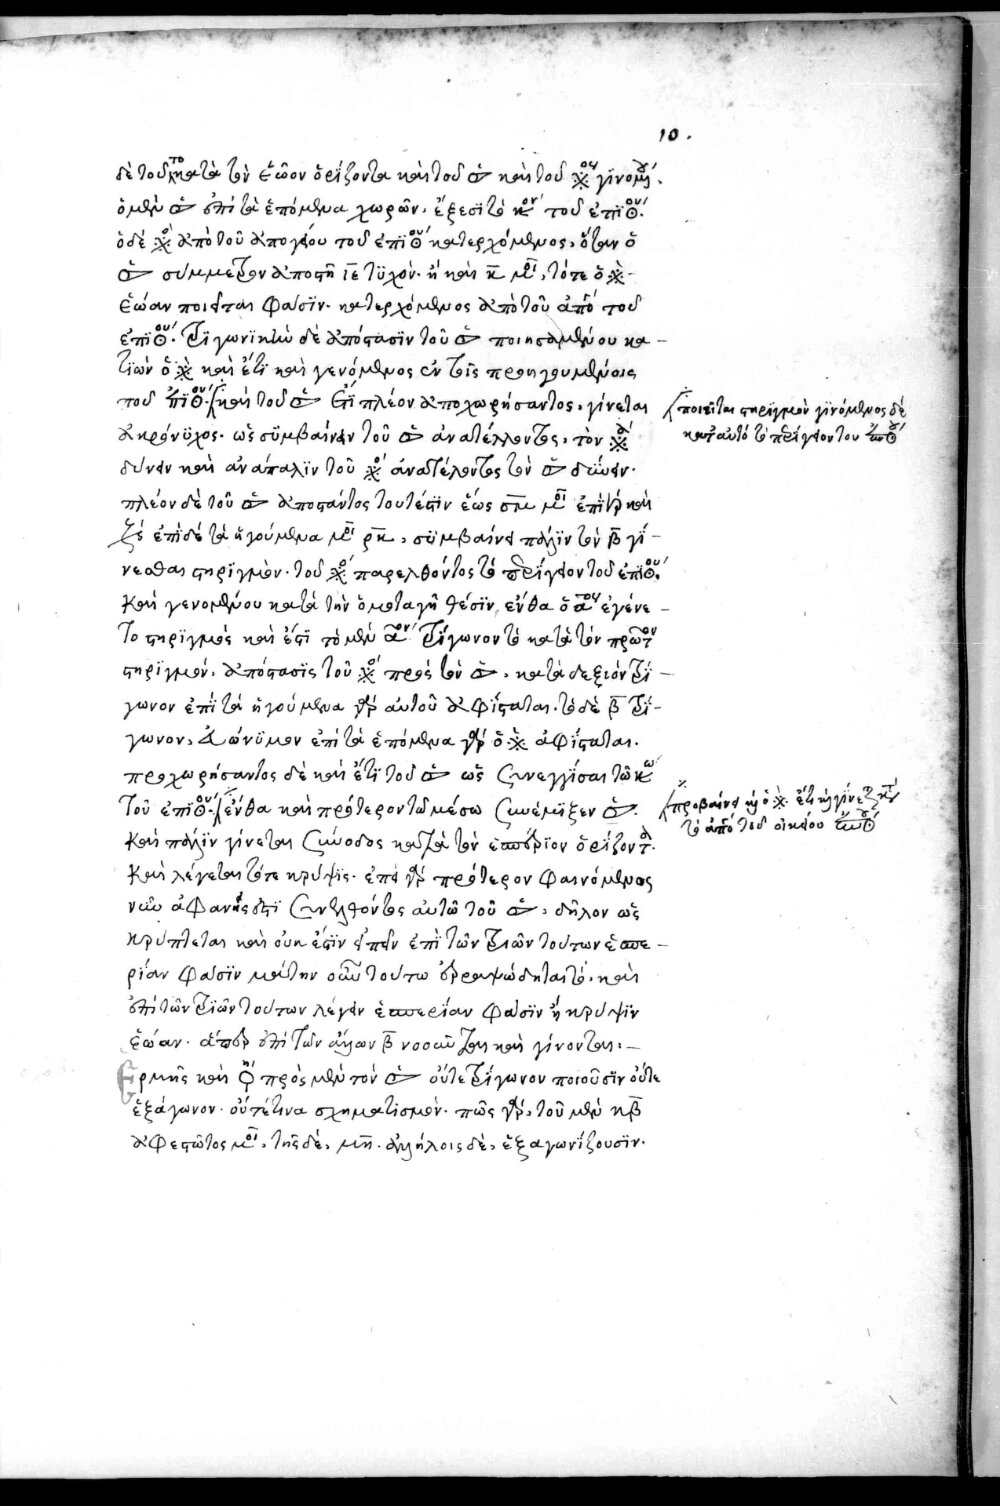 10.
δὲ τοῦτο κατὰ τὸν ἑῶον ὁρίζοντα καὶ τοῦ καὶ τοῦ γινομ
ὁ μὲν ἐπὶ τὰ ἑπόμενα χωρῶν, ἔξεισι τὸ κον τοῦ ἐπι
ὁ δὲ ἀπὸ τοῦ ἀπογείου τοῦ ἐπι κατερχόμενος, ὅταν ὁ
σύμμετρον ἀποστῇ ιε τυχὸν. ἢ καὶ κ μοι, τότε ὁ
ἑώαν ποιεῖται φάσϊν. κατερχόμενος ἀπὸ τοῦ ἀπο τοῦ
ἐπι. τριγωνϊκὴν δὲ ἀπόστασϊν τοῦ ποιησαμένου κα-
τϊὼν ὁ καὶ ἔτι καὶ γενόμενος ἐν τοῖς προηγουμένοις
τοῦ ἐπι καὶ τοῦ ἐπϊ πλέον ἀποχωρήσαντος, γίνεται
ἀκρόνυχος. ὡς συμβαίνειν τοῦ ἀνατέλλοντος, τὸν
δύνειν καὶ ἀνάπαλϊν τοῦ ἀνατέλοντος τὸν δύνειν.
πλέον δὲ τοῦ ἀποστάντος τουτέστϊν ἕως σμ μοι ἐπὶ καὶ
ἐπὶ δὲ τὰ ἡγούμενα μοι ρκ, συμβαίνει πάλϊν τὸν β γί-
νεσθαι στηριγμὸν. τοῦ παρελθόντος τὸ περίγειον τοῦ ἐπι
καὶ γενομένου κατὰ τὴν ὁμοταγῆ θέσϊν, ἔνθα ὁ αος ἐγένε-
το στηριγμὸς καὶ ἔστϊ τὸ μὲν αον τρίγωνον τὸ κατὰ τὸν πρῶτον
στηριγμὸν, ἀπόστασις τοῦ πρὸς τὸν, κατὰ δεξιὸν τρί-
γωνον ἐπὶ τὰ ἡγούμενα γὰρ αὐτοῦ ἀφίσταται. τὸ δὲ β τρί-
γωνον, εὐώνϋμον ἐπὶ τὰ ἑπόμενα γὰρ ὁ ἀφίσταται.
προχωρήσαντος δὲ καὶ ἔτϊ τοῦ ὡς συνεγγίσαι τῶ κω
τοῦ ἐπι ἔνθα καὶ πρότερον τῶ μέσω συνέμϊξεν.
καὶ πάλϊν γίνεται σύνοδος κατὰ τὸν ἑσπέριον ὁρίζοντ
καὶ λέγεται τότε κρύψις. ἐπεὶ γὰρ πρότερον φαινόμενος
νῦν ἀφανής ἐστϊ συνελθόντος αὐτῶ τοῦ, δῆλον ὡς
κρύπτεται καὶ οὐκ ἔστϊν εἰπεῖν ἐπὶ τῶν τριῶν τούτων ἑσπε-
ρίαν φάσϊν μάτην οὖν τούτω καὶ
ἐπὶ τῶν τριῶν τούτων λέγειν ἑσπερίαν φάσϊν ἢ κρύψϊν
ἑώαν. ἅπερ ἐπὶ τῶν ἄλλων β νοοῦνται καὶ γίνονται:-
Ἑρμῆς καὶ πρὸς μὲν τὸν οὔτε τρίγωνον ποιοῦσϊν οὔτε
ἑξάγωνον. οὔτέ τινα σχηματισμὸν. πῶς γάρ, τοῦ μὲν κβ
ἀφεστῶτος μοι, τῆς δὲ, μη. ἀλλήλοις δὲ, ἑξαγωνίζουσϊν.
ποιεῖται στηριγμὸν γϊνόμενος δὲ
κατ' αὐτὸ τὸ περίγειον του
προβαίνει καὶ ὁ ἔτι καὶ γίνεται
τὸ ἀπο τοῦ οἰκείου